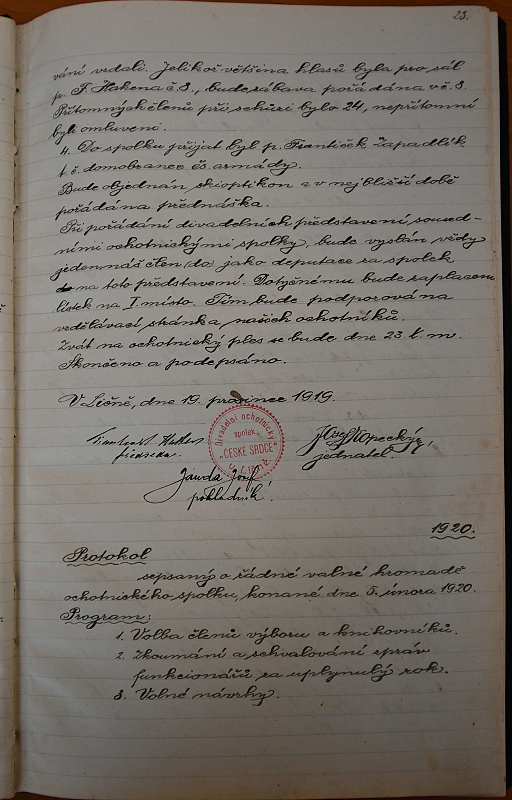 23.
váni vzdali. Jelikož většina hlasů byla pro sál
p. F. Hakena č 8., bude zábava pořádána v č. 8.
Přítomných členů při schůzi bylo 24, nepřítomní
byli omluveni.
4. Do spolku přijat byl p. František Zapadlík
t. č. domobranec čs. armády.
Bude objednán skioptikon a v nejbližší době
pořádána přednáška.
Při pořádání divadelních představení soused-
ními ochotnickými spolky, bude vyslán vždy
jeden náš člen (do) jako deputace za spolek
na toto představení. Dotyčnému bude zaplacen
lístek na I. místo. Tím bude podporována
vzdělávací stránka našich ochotníků.
Zvát na ochotnický ples se bude dne 23. t. m.
Skončeno a podepsáno.
V Líšně, dne 19. prosince 1919.
Divadelní ochotnický
spolek
„ČESKÉ SRDCE"
v Líšně.
Josef Kopecký,
jednatel.
Janda Josef
pokladník.
1920.
Protokol
sepsaný o řádné valné hromadě
ochotnického spolku, konané dne 5. února 1920.
Program:
1. Volba členů výboru a knihovníků.
2. Zkoumání a schvalování zpráv
funkcionářů za uplynulý rok.
3. Volné návrhy.